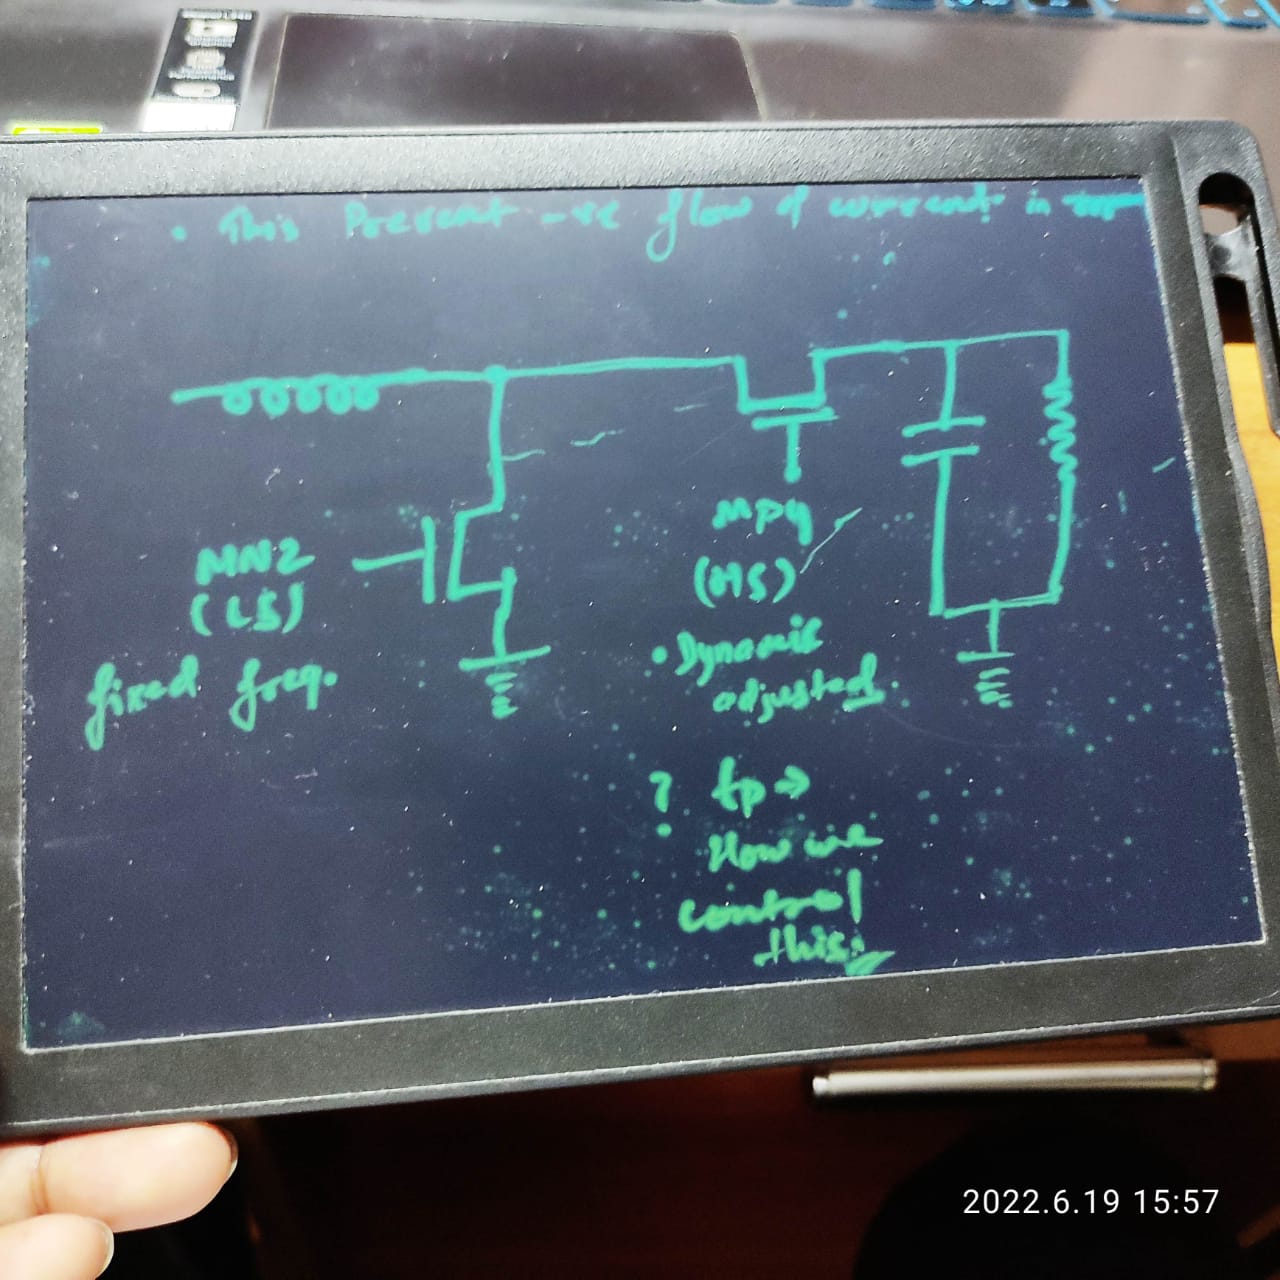 • This Prevent -ve flow of current in
MN2
(LS)
fixed freq.
MP4
(HS)
• Dynamic
adjusted.
? tp →
How we
control
this.
2022.6.19 15:57